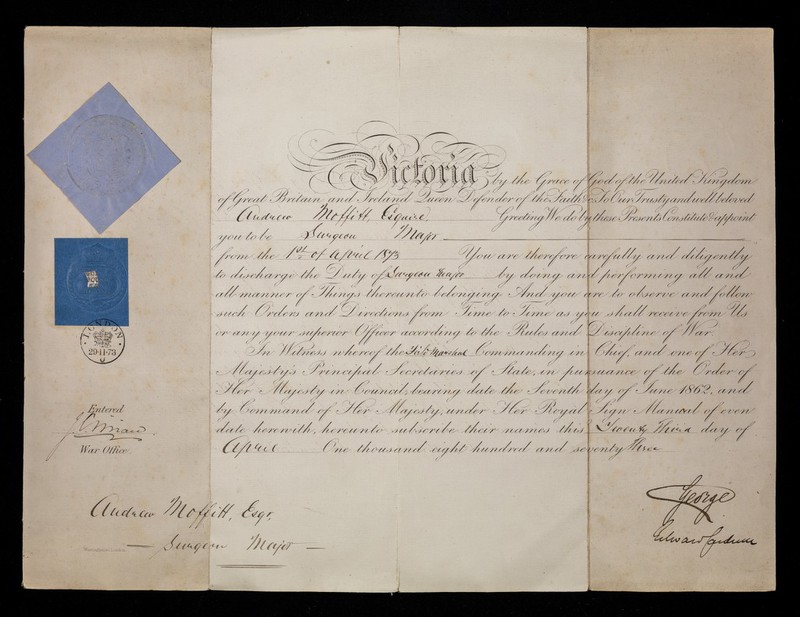 Victoria by the Grace of God of the United Kingdom
of Great Britain and Ireland Queen Defender of the Faith & To Our Trusty and well beloved
Andrew Moffitt, Esquire Greeting We do by these Presents Constitute & appoint
you to be Surgeon Major
from the 1st of April 1873 You are therefore carefully and diligently
to discharge the Duty of Surgeon Major by doing and performing all and
all manner of Things thereunto belonging And you are to observe and follow
such Orders and Directions from Time to Time as you shall receive from Us
or any your superior Officer according to the Rules and Discipline of War.
In Witness whereof the Field Marshal Commanding in Chief, and one of Her
Majesty's Principal Secretaries of State, in pursuance of the Order of
Her Majesty in Council, bearing date the Seventh day of June 1862, and
by Command of Her Majesty, under Her Royal Sign Manual of even
date herewith, hereunto subscribe their names this Twenty Third day of
April One thousand eight hundred and seventy three
LONDON
29·11·73
Entered
War Office.
Andrew Moffitt, Esqr,
Surgeon Major
George
Edward Cardwell